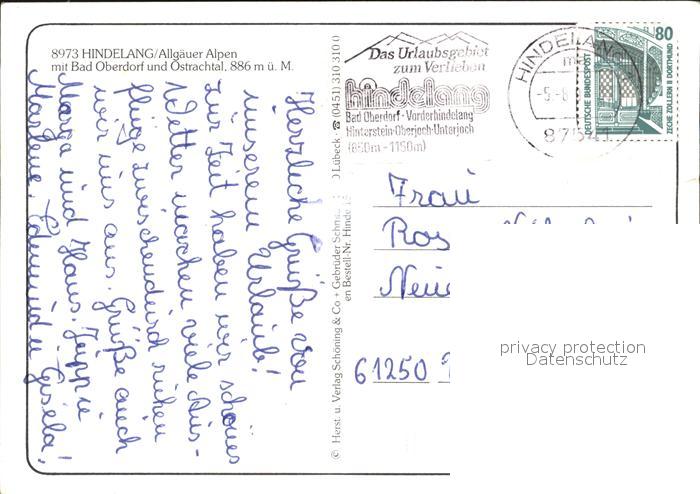 8973 HINDELANG/Allgäuer Alpen
mit Bad Oberdorf und Ostrachtal, 886 m ü. M.
Herzliche Grüße von
unserem Urlaub!
Zur Zeit haben wir schönes
Wetter machen viele Aus-
flüge zwischendurch ruhen
wir uns aus. Grüße auch
Maria und Hans.
Marlene, Edmund u Gisela!
© Herst. u. Verlag Schöning & Co + Gebrüder Schmidt Lübeck ☎ (0451) 310 310 0
en Bestell-Nr. Hinde
Das Urlaubsgebiet
zum Verlieben
hindelang
Bad Oberdorf - Vorderhindelang
Hinterstein-Oberjoch-Unterjoch
(850m - 1150m)
HINDELANG
87541
80
DEUTSCHE BUNDESPOST
ZECHE ZOLLERN II DORTMUND
Frau
Ros
Neue
61250
privacy protection
Datenschutz